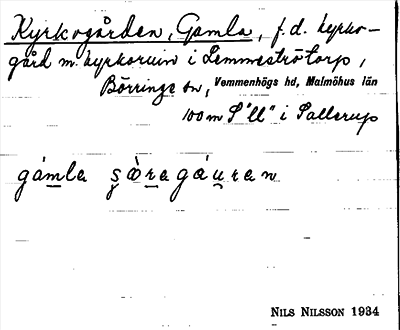 Kyrkogården, Gamla, f.d. kyrko-
gård m. kyrkoruin i Lemmeströtorp,
Börringe sn, Vemmenhögs hd, Malmöhus län
100 m S "ll" i Sallerup
gámla sø̀ragáuran
NILS NILSSON 1934